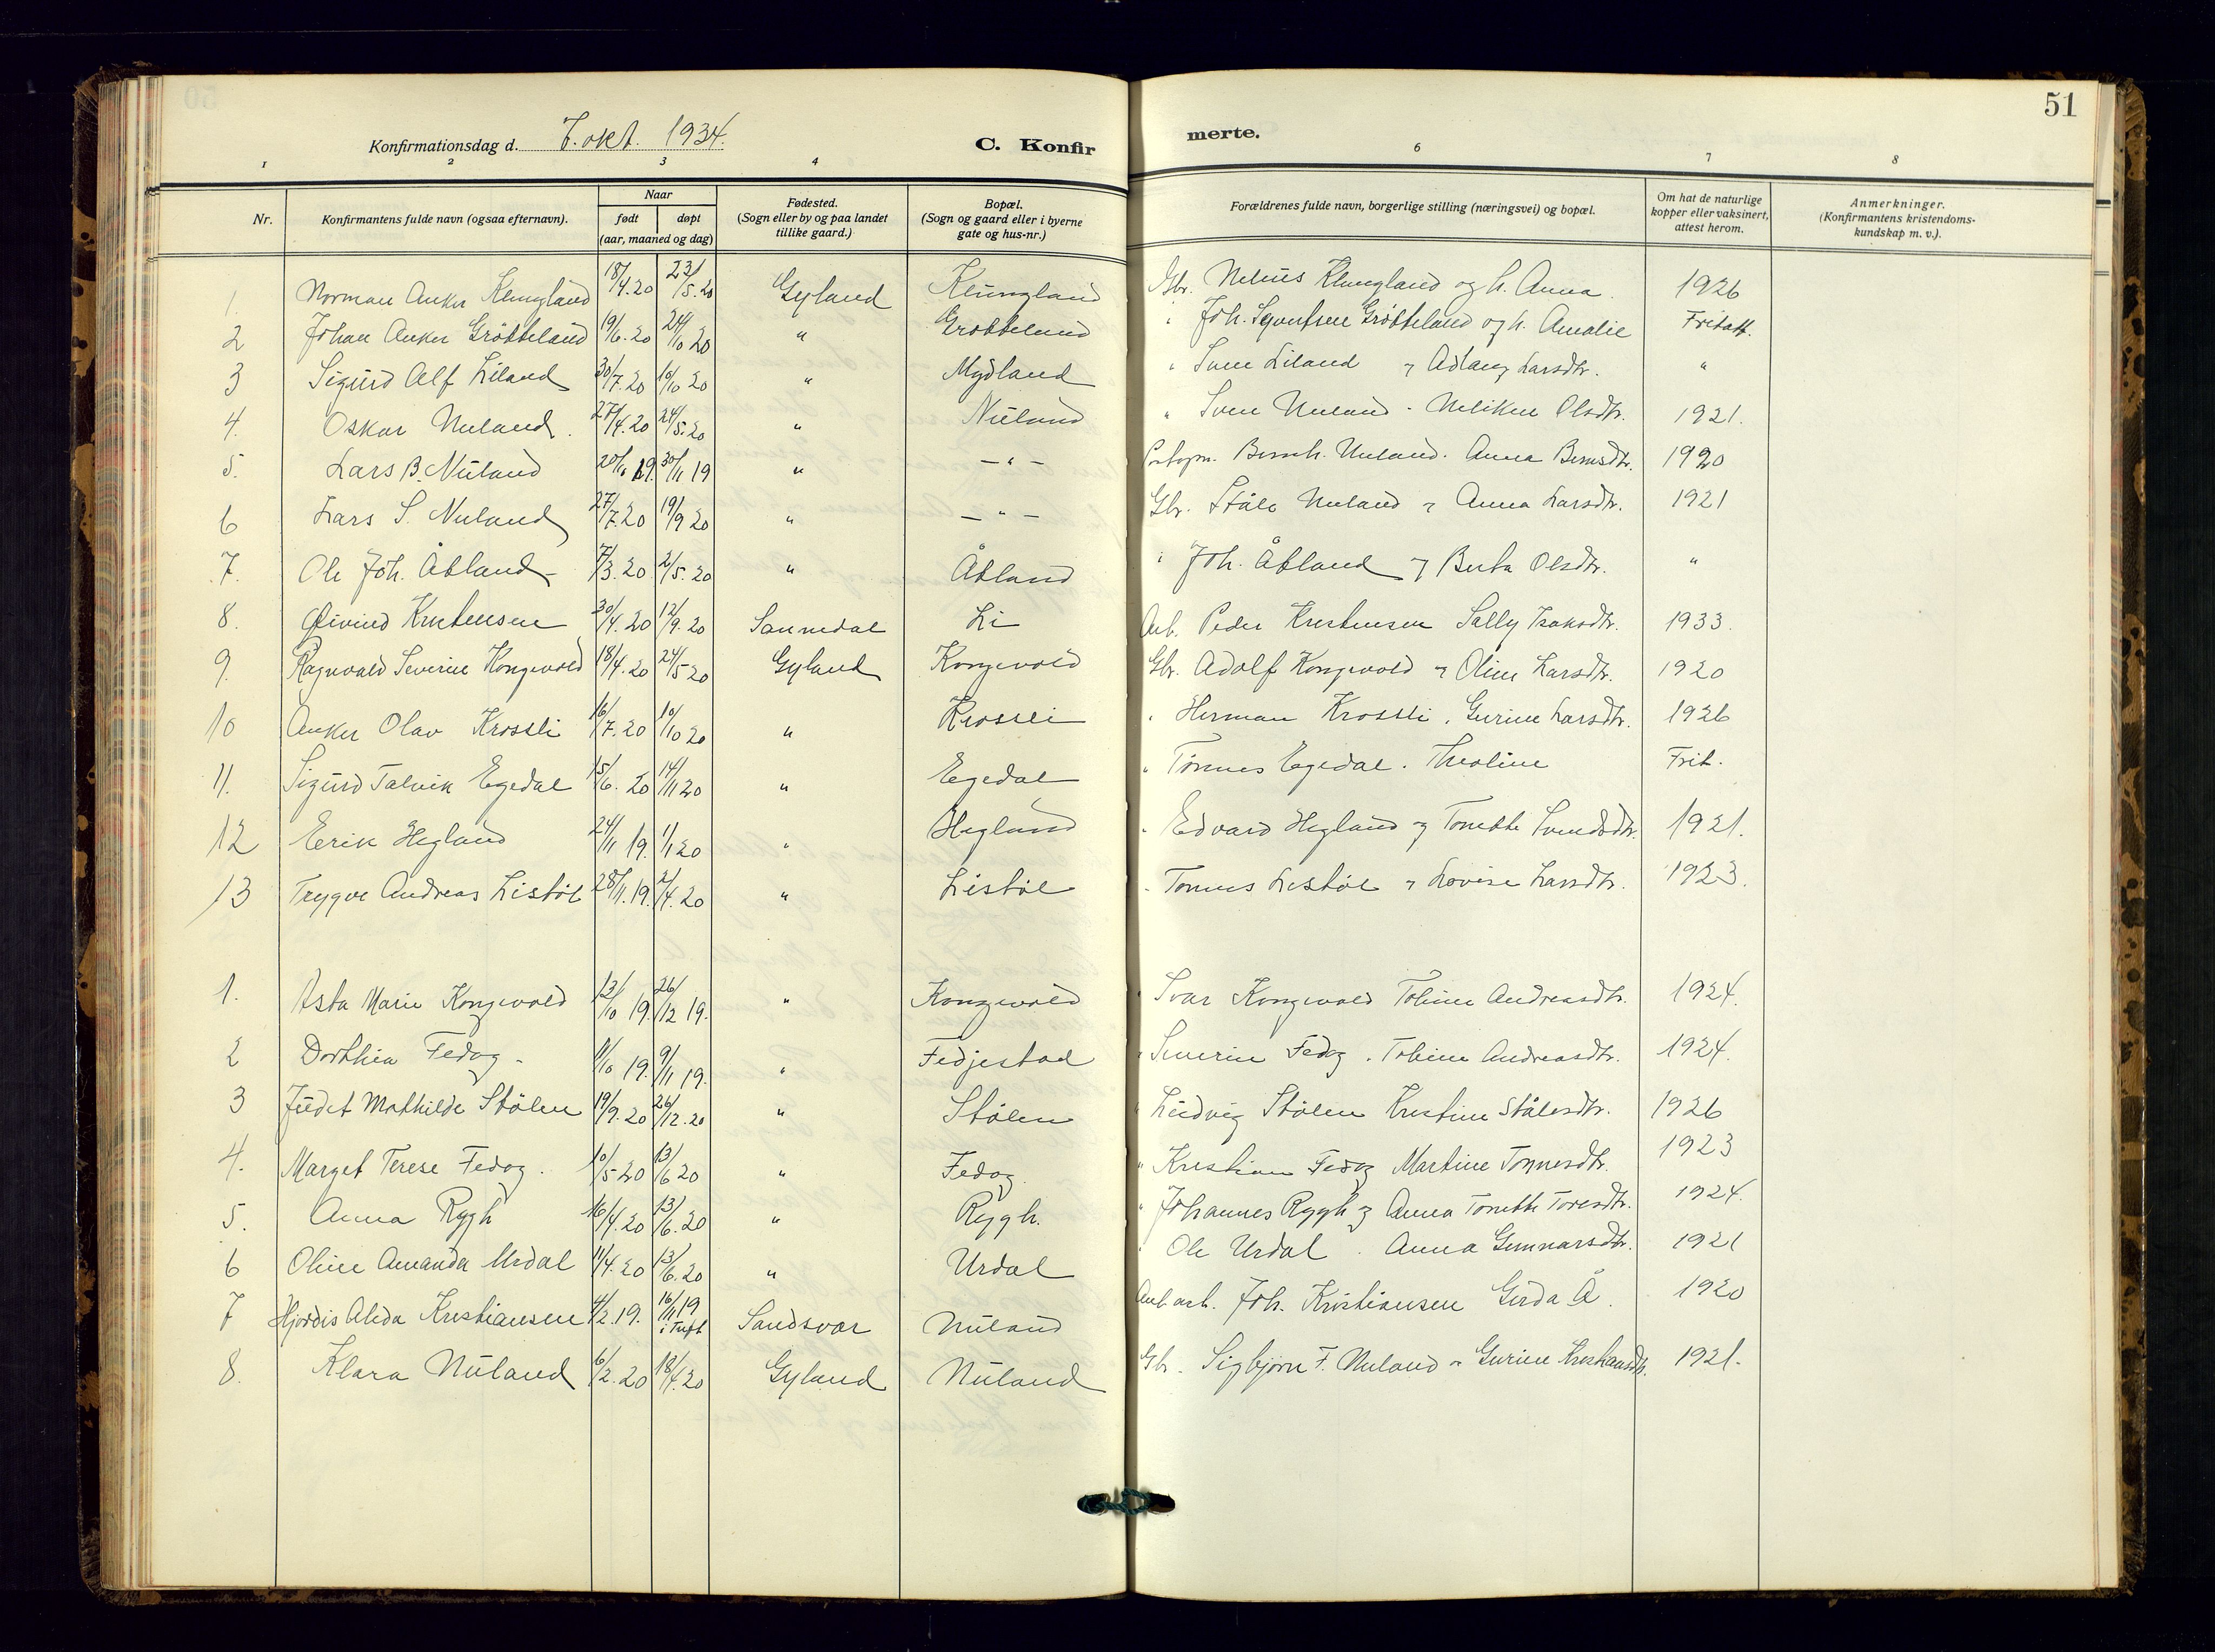 51
Konfirmationsdag d. 7. okt. 1934. C. Konfir merte.
1 2 3 4 6 7 8
Nr. Konfirmantens fulde navn (ogsaa efternavn). Naar født døpt (aar, maaned og dag) Fødested. (Sogn eller by og paa landet tillike gaard.) Bopæl. (Sogn og gaard eller i byerne gate og hus-nr.) Forældrenes fulde navn, borgerlige stilling (næringsvei) og bopæl. Om hat de naturlige kopper eller vaksinert, attest herom. Anmerkninger. (Konfirmantens kristendoms-kundskap m. v.).
1. Norman Anker Klungland 18/4.20 23/5.20 Gyland Klungland Gbr. Nelius Klungland og h. Anna. 1926
2 Johan Anker Grøtteland 19/6.20 24/10 20 " Grøtteland " Joh. Grøtteland og h. Amalie Fritatt.
3 Sigurd Alf Liland 30/7.20 10/10 20 " Mydland " Sven Liland Larsdtr. "
4. Oskar Nuland. 27/4.20 24/5.20 " Nuland " Sven Nuland - Olsdtr. 1921.
5. Lars B. Nuland 20/11 19. 30/11 19 " — " — Bernh. Nuland. Anna Berntsdtr. 1920
6 Lars S. Nuland 27/7.20 19/9 20 " — " — Gbr. Ståle Nuland Anna Larsdtr. 1921
7. Ole Joh. Åtland 7/3.20 2/5.20 " Åtland " Joh. Åtland Berta Olsdtr. "
8. Øivind Kristensen 30/4.20 12/9.20 Sannidal Li Arb. Peder Kristensen Sally Isaksdtr. 1933.
9. Ragnvald Severin Kongevold 18/4.20 24/5 20 Gyland Kongevold Gbr. Adolf Kongevold Oline Larsdtr. 1920
10 Anker Olav Krossli 16/7.20 10/10 20 " Krossli " Herman Krossli, Gurine Larsdtr. 1926
11. Sigurd Talvik Egedal 15/6.20 14/11 20 " Egedal " Tønnes Egedal. Theoline Frit.
12 Eerik Hegland 24/11 19. 1/1 20 " Hegland " Edvard Hegland og Tonette Svendsdtr. 1921.
13 Trygve Andreas Listøl 28/11.19. 2/4.20 " Listøl " Tønnes Listøl Lovise Larsdtr. 1923.
1. Asta Marie Kongevold 13/10 19. 26/12 19. " Kongevold " Ivar Kongevold Toline Andreasdtr. 1924.
2 Dorthea Fedog 11/10 19. 9/11 19. " Fedjestad " Severin Fedog. Tobine Andreasdtr. 1924.
3 Judit Mathilde Stølen 19/9.20 26/12.20 " Stølen " Ludvig Stølen Kristine Stålesdtr. 1926
4. Marget Terese Fedog. 10/5 20 13/6 20 " Fedog. " Kristian Fedog Martine Tønnesdtr. 1923
5. Anna Rygh 16/4.20 13/6.20 " Rygh. " Johannes Rygh og Anna Tonette Toresdtr. 1924.
6 Oline Amanda Urdal 11/4.20 13/6.20 " Urdal " Ole Urdal. Anna Gunnarsdtr. 1921
7 Hjørdis Alida Kristiansen 4/2.19. 16/11 19 i Tuft Sandsvær Nuland Joh. Kristiansen Gerda Å. 1920
8. Klara Nuland 6/2.20 18/4.20 Gyland Nuland Gbr. Sigbjørn F. Nuland Gurine Kristiansdtr. 1921.